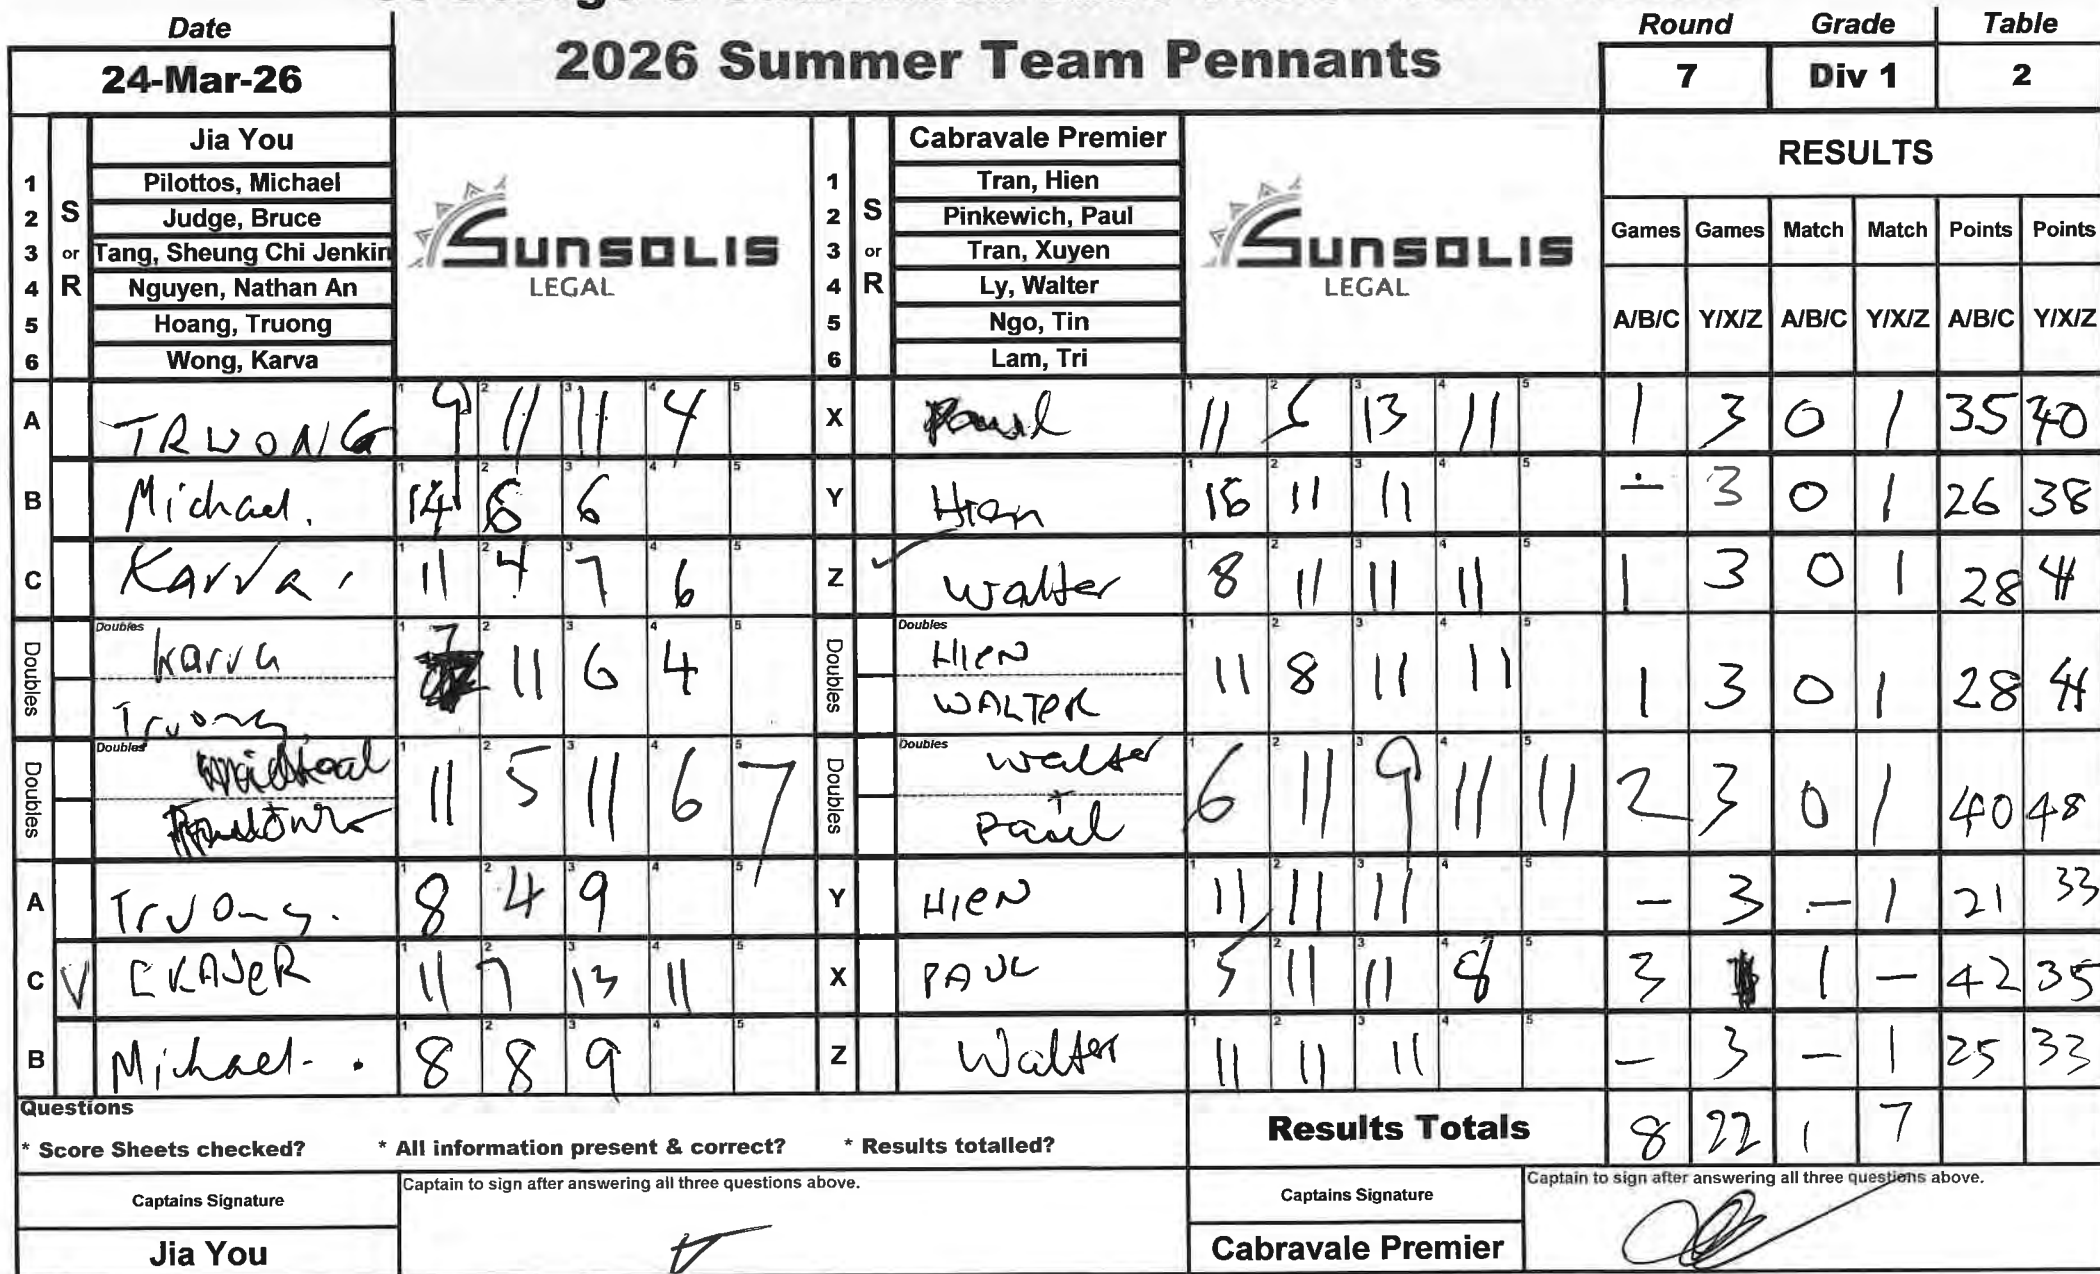 Date
24-Mar-26
2026 Summer Team Pennants
Round Grade Table
7 Div 1 2
Jia You
1 Pilottos, Michael
2 Judge, Bruce
3 Tang, Sheung Chi Jenkin
4 Nguyen, Nathan An
5 Hoang, Truong
6 Wong, Karva
S or R
SUNSOLIS
LEGAL
Cabravale Premier
1 Tran, Hien
2 Pinkewich, Paul
3 Tran, Xuyen
4 Ly, Walter
5 Ngo, Tin
6 Lam, Tri
S or R
SUNSOLIS
LEGAL
RESULTS
Games Games Match Match Points Points
A/B/C Y/X/Z A/B/C Y/X/Z A/B/C Y/X/Z
A TRUONG 9 11 11 4 X Paul 11 5 13 11 1 3 0 1 35 40
B Michael. 14 6 6 Y Hien 16 11 11 - 3 0 1 26 38
C Karva 11 4 7 6 Z ✓ Walter 8 11 11 11 1 3 0 1 28 41
Doubles Karva Truong 7 11 6 4 Doubles HIEN WALTER 11 8 11 11 1 3 0 1 28 41
Doubles 11 5 11 6 7 Doubles Walter + Paul 6 11 9 11 11 2 3 0 1 40 48
A Truong. 8 4 9 Y HIEN 11 11 11 - 3 - 1 21 33
C V 11 7 13 11 X PAUL 5 11 11 8 3 1 - 42 35
B Michael. 8 8 9 Z Walter 11 11 11 - 3 - 1 25 33
Questions
* Score Sheets checked? * All information present & correct? * Results totalled?
Results Totals 8 22 1 7
Captains Signature
Captain to sign after answering all three questions above.
Jia You
Captains Signature
Captain to sign after answering all three questions above.
Cabravale Premier